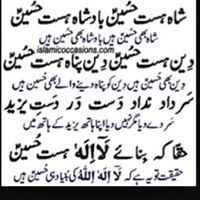 شاہ ہست حُسینؑ بادشاہ ہست حُسینؑ
شاہ بھی حُسین ہیں بادشاہ بھی حُسین ہیں
islamicoccasions.com
دین ہست حُسینؑ دین پناہ ہست حُسینؑ
دین بھی حُسین ہیں دین کو پناہ دینے والے بھی حُسین ہیں
سر داد نداد دست در دست یزید
سر دے دیا مگر نہیں دیا اپنا ہاتھ یزید کے ہاتھ میں
حقا کہ بنائے لَا اِلٰہ ہست حُسینؑ
حقیقت تو یہ ہے کہ لَا اِلٰہَ اِلَّا اللہ کی بنیاد ہی حُسین ہیں